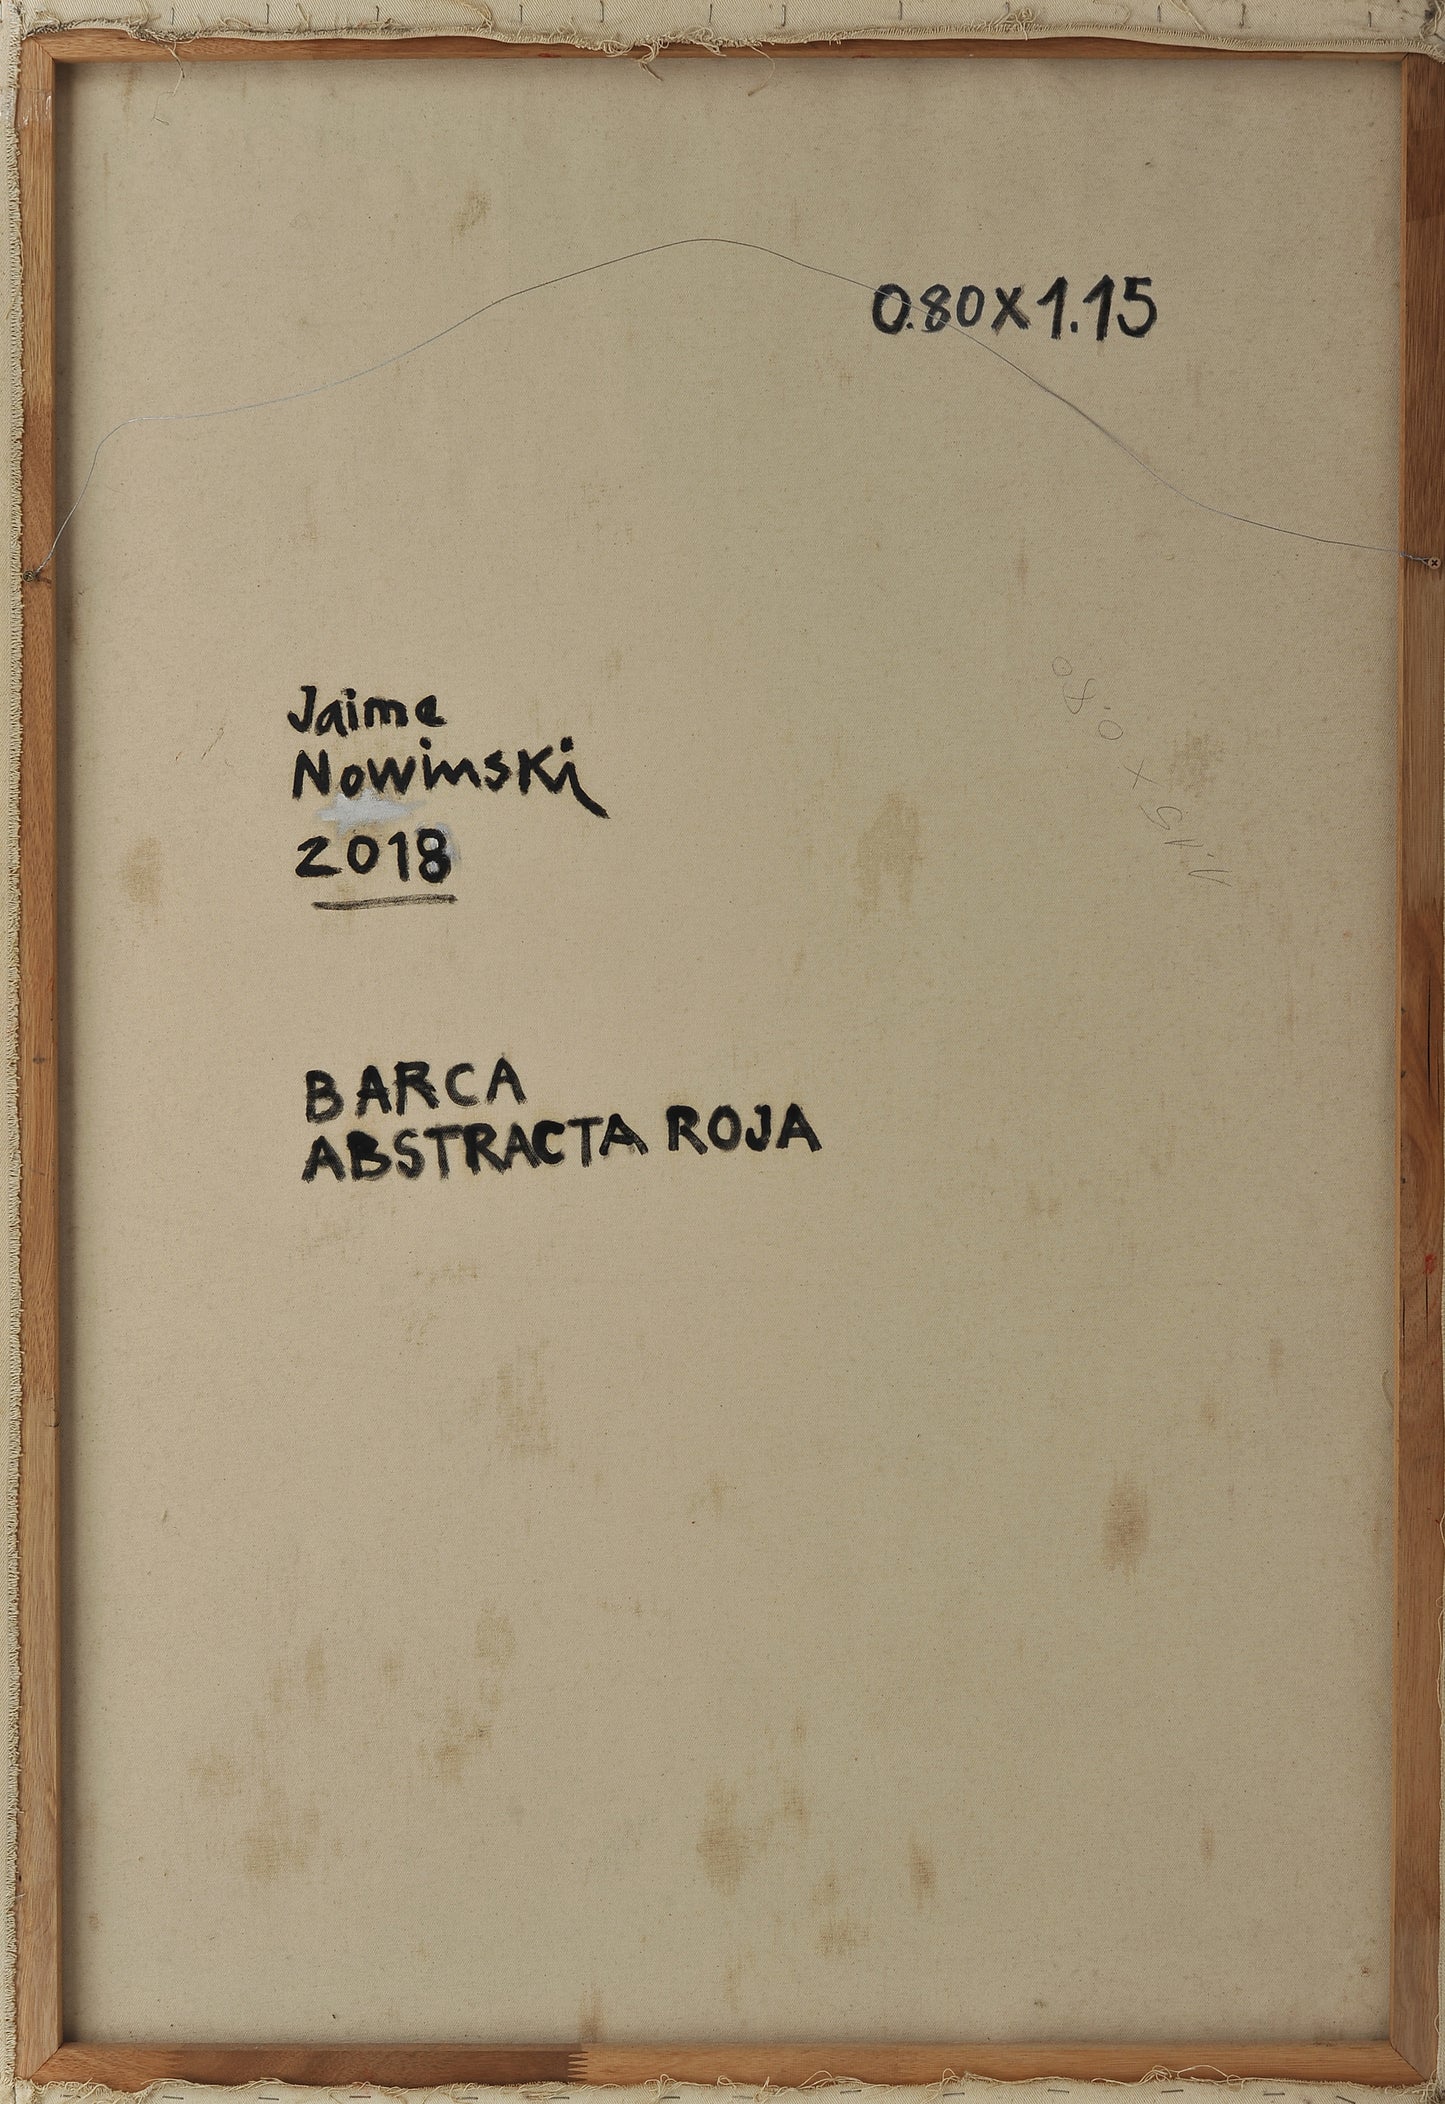 0.80x1.15
1.15 x 0.80
Jaime
Nowinski
2018
BARCA
ABSTRACTA ROJA